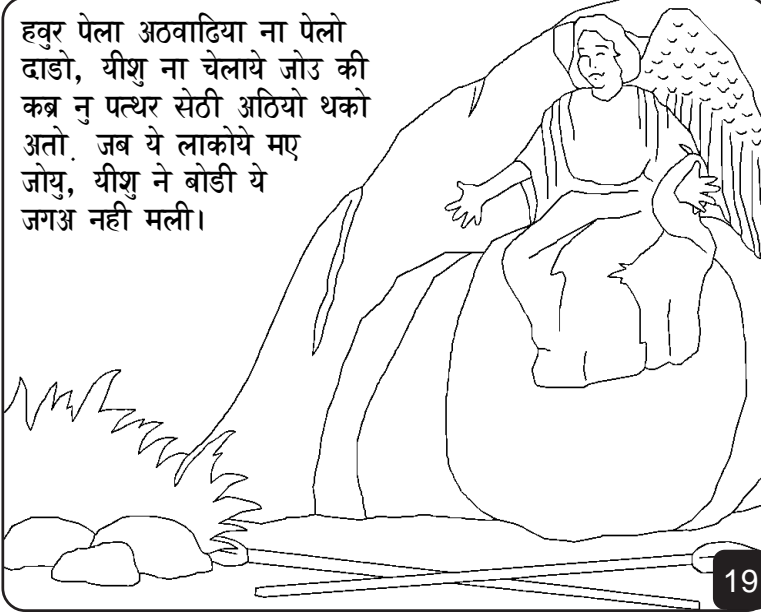 हवुर पेला अठवाढिया ना पेलो
दाडो, यीशु ना चेलाये जोउ की
कब्र नु पत्थर सेठी अठियो थको
अतो. जब ये लाकोये मए
जोयु, यीशु ने बोडी ये
जगअ नही मली।
19